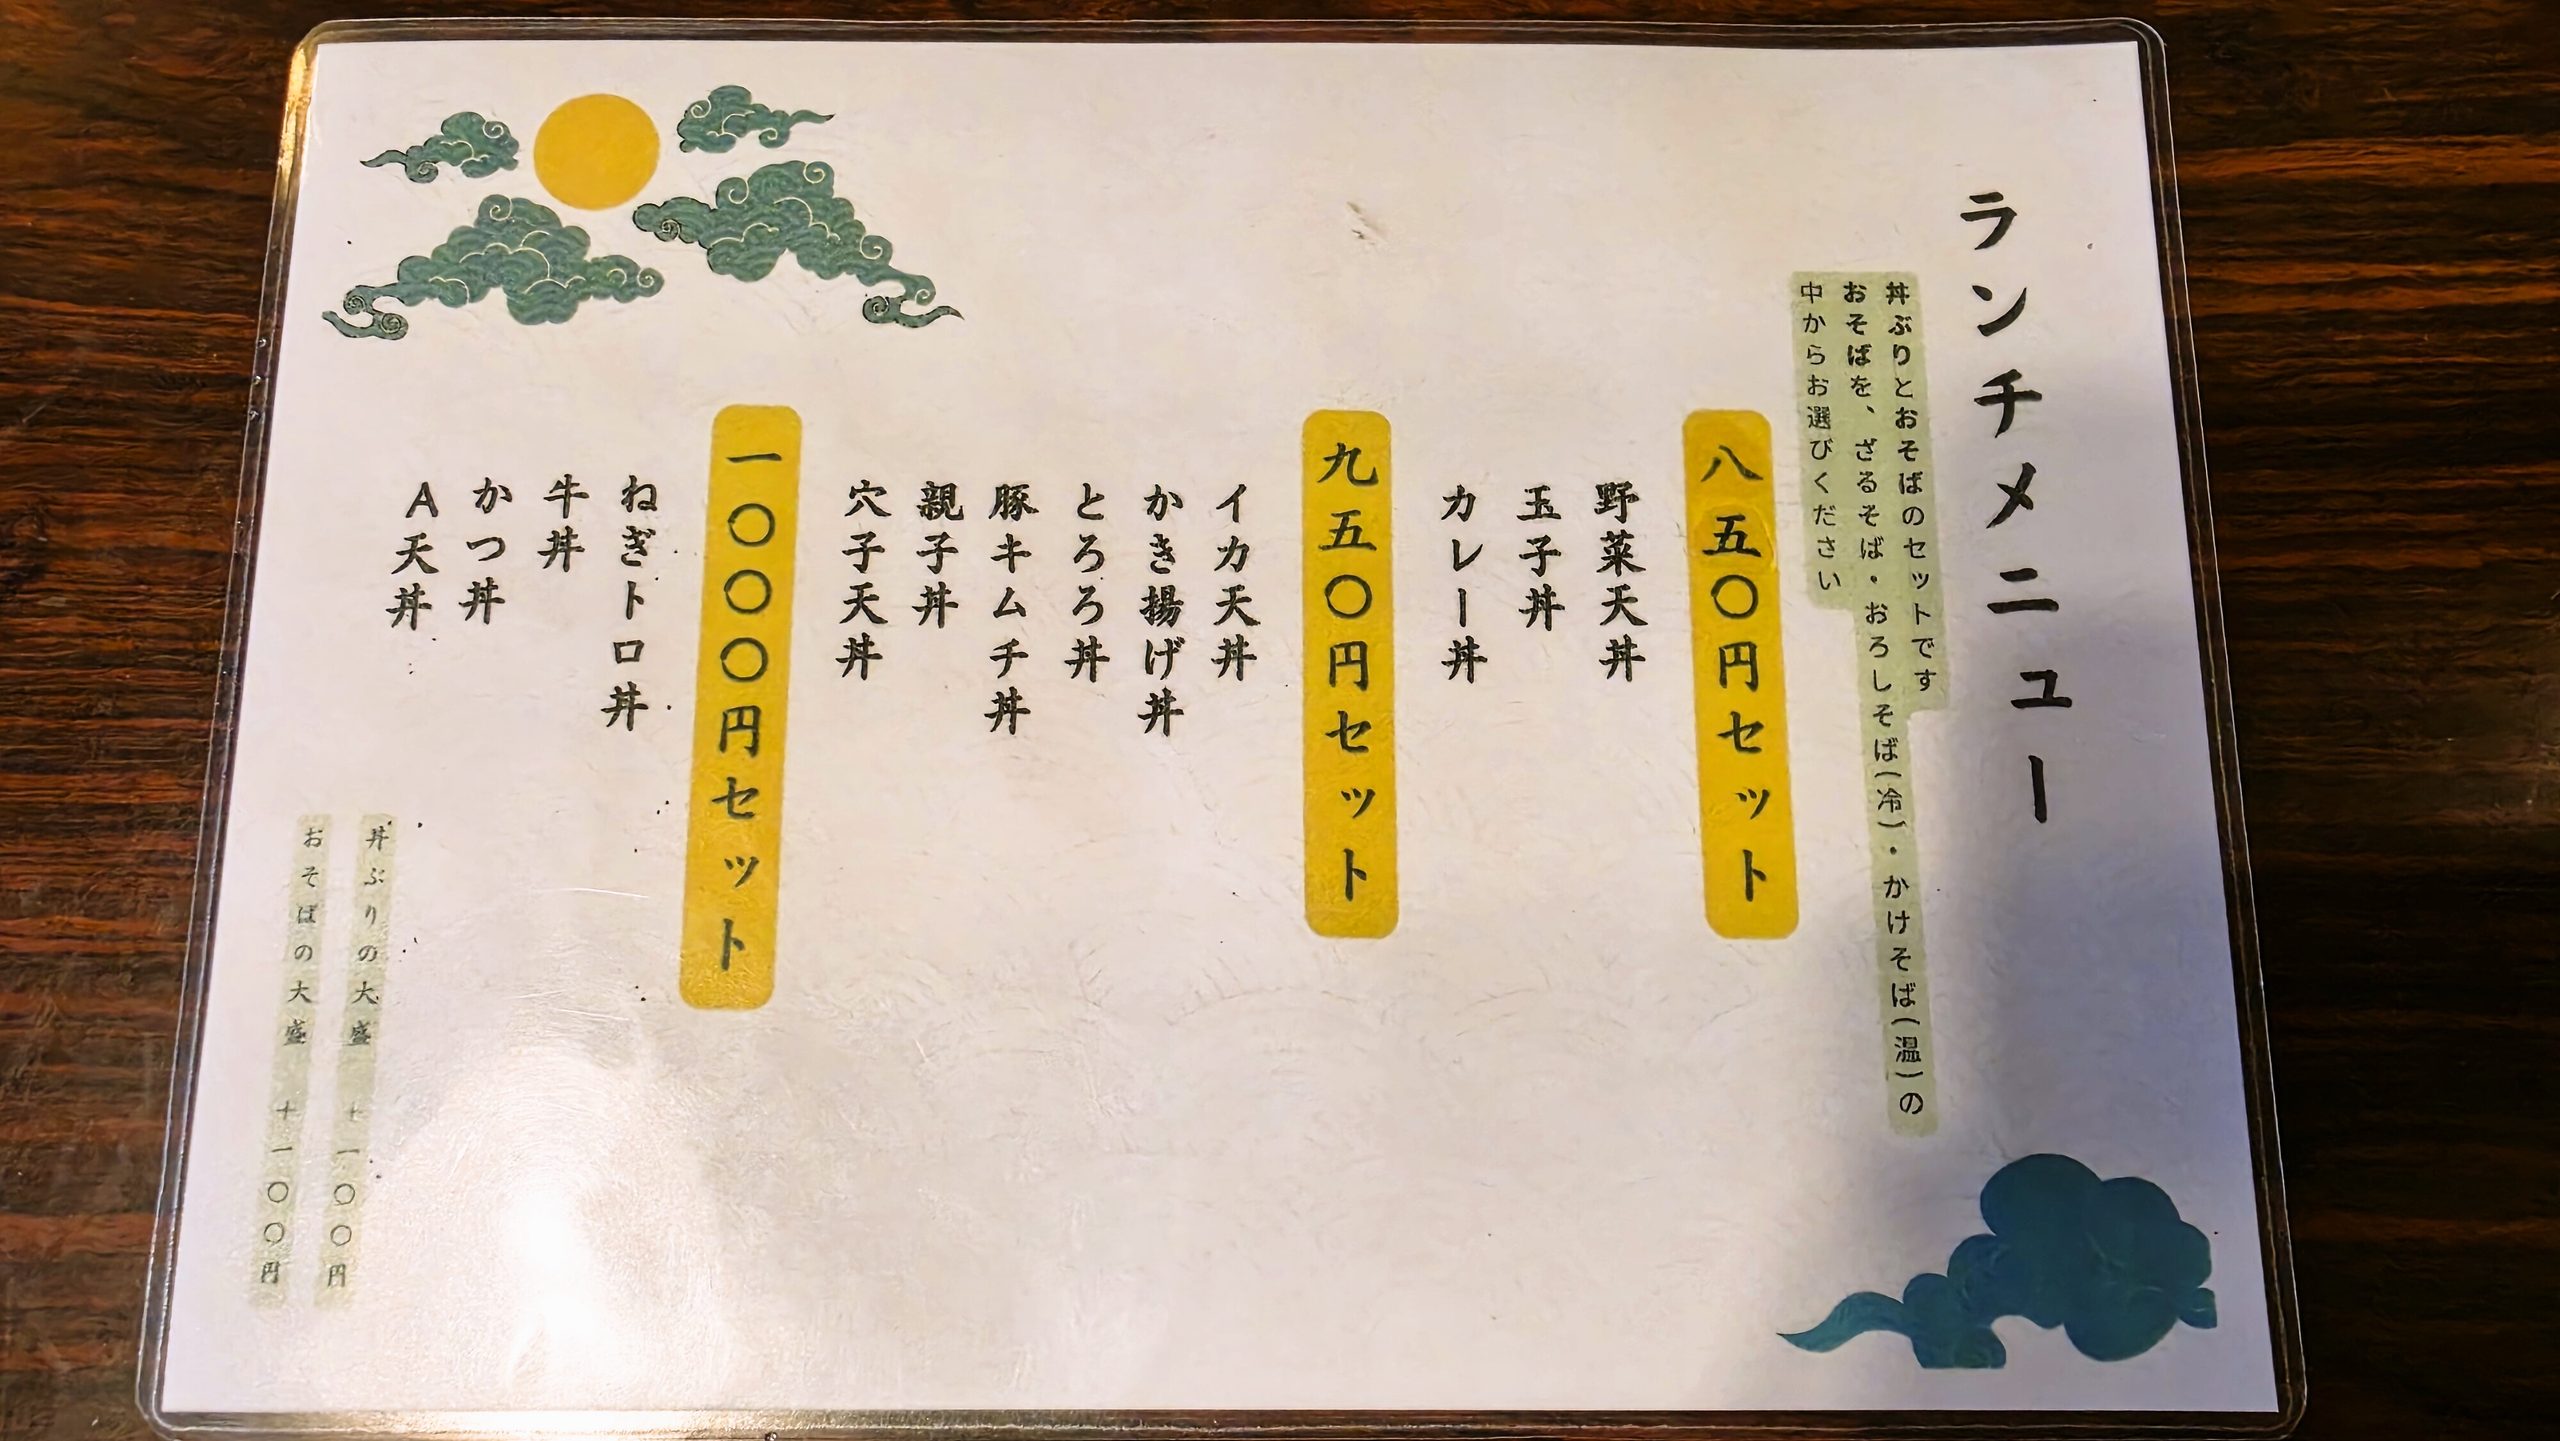 ランチメニュー
丼ぶりとおそばのセットです
おそばを、ざるそば・おろしそば(冷)・かけそば(温)の
中からお選びください
八五〇円セット
野菜天丼
玉子丼
カレー丼
九五〇円セット
イカ天丼
かき揚げ丼
とろろ丼
豚キムチ丼
親子丼
穴子天丼
一〇〇〇円セット
ねぎトロ丼
牛丼
かつ丼
A天丼
丼ぶりの大盛 +一〇〇円
おそばの大盛 +一〇〇円